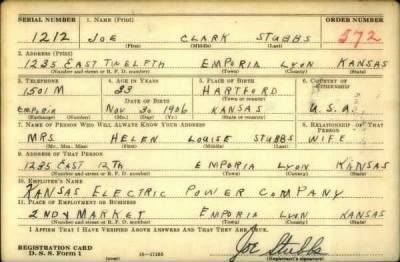 SERIAL NUMBER 1. NAME (Print) ORDER NUMBER
1212 JOE CLARK STUBBS 572
(First) (Middle) (Last)
2. ADDRESS (Print)
1235 EAST TWELFTH EMPORIA LYON KANSAS
(Number and street or R. F. D. number) (Town) (County) (State)
3. TELEPHONE 4. AGE IN YEARS 5. PLACE OF BIRTH 6. COUNTRY OF CITIZENSHIP
1501 M 33 HARTFORD
DATE OF BIRTH (Town or county)
EMPORIA Nov 30 1906 KANSAS U.S.A.
(Exchange) (Number) (Mo.) (Day) (Yr.) (State or country)
7. NAME OF PERSON WHO WILL ALWAYS KNOW YOUR ADDRESS 8. RELATIONSHIP OF THAT PERSON
MRS. HELEN LOUISE STUBBS WIFE
(Mr., Mrs., Miss) (First) (Middle) (Last)
9. ADDRESS OF THAT PERSON
1235 EAST 12TH EMPORIA LYON KANSAS
(Number and street or R. F. D. number) (Town) (County) (State)
10. EMPLOYER'S NAME
KANSAS ELECTRIC POWER COMPANY
11. PLACE OF EMPLOYMENT OR BUSINESS
2ND & MARKET EMPORIA LYON KANSAS
(Number and street or R. F. D. number) (Town) (County) (State)
I AFFIRM THAT I HAVE VERIFIED ABOVE ANSWERS AND THAT THEY ARE TRUE.
REGISTRATION CARD
D. S. S. Form 1 (over) Joe Stubbs
(Registrant's signature)